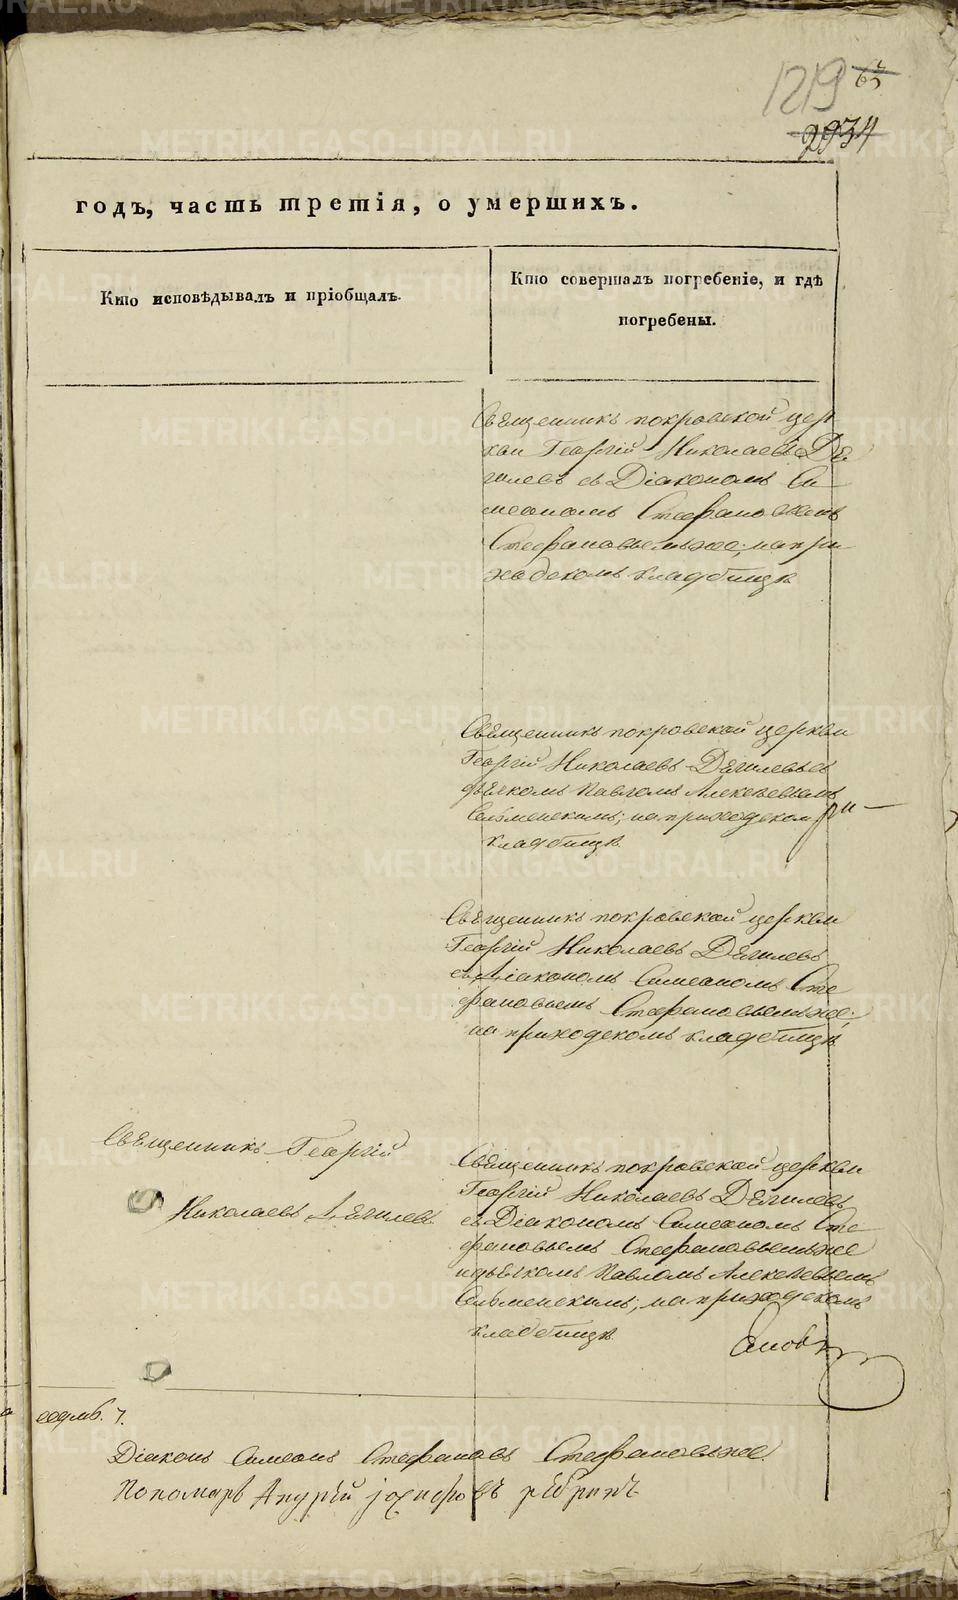 1219 65
2934
годъ, часть третія, о умершихъ.
Кто исповѣдывалъ и пріобщалъ.
Кто совершалъ погребеніе, и гдѣ
погребены.
Священникъ покровской цер
кви Георгій Николаевъ Дѣ
гилевъ съ Діакономъ Си
меономъ Стефановымъ
Стефановымъ же; на при
ходскомъ кладбищѣ
Священникъ покровской церкви
Георгій Николаевъ Дѣгилевъ съ
дьячкомъ Павломъ Алексѣевымъ
на приходском
кладбищѣ
Священникъ покровской церкви
Георгій Николаевъ Дѣгилевъ
съ Діакономъ Симеономъ Сте
фановымъ Стефановымъ же;
на приходскомъ кладбищѣ
Священникъ Георгій
Николаевъ Дѣгилевъ
Священникъ покровской церкви
Георгій Николаевъ Дѣгилевъ
съ Діакономъ Симеономъ Сте
фановымъ Стефановымъ же
и дьячкомъ Павломъ Алексѣевымъ
на приходскомъ
кладбищѣ
Діаконъ Симеонъ Стефановъ Стефановъ же
Пономарь Андрѣй
METRIKI.GASO-URAL.RU